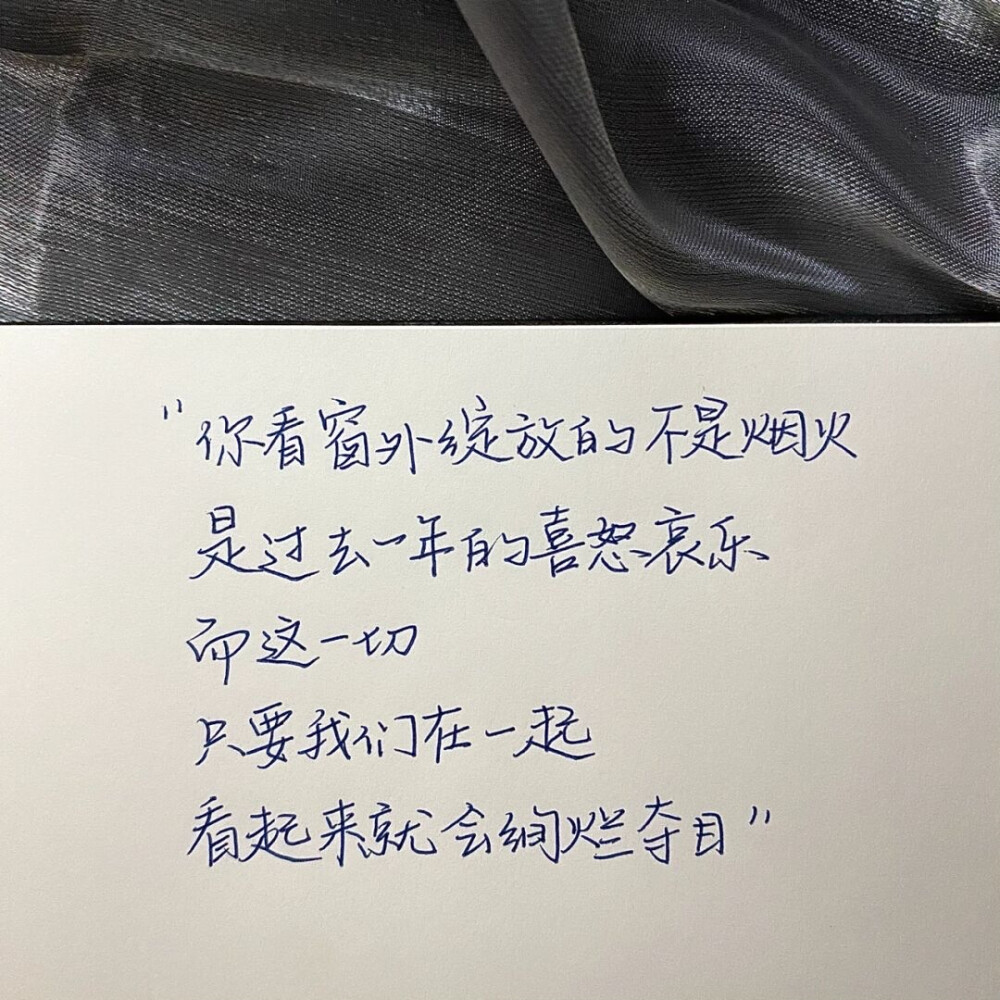 "你看窗外绽放的不是烟火
是过去一年的喜怒哀乐
而这一切
只要我们在一起
看起来就会绚烂夺目"